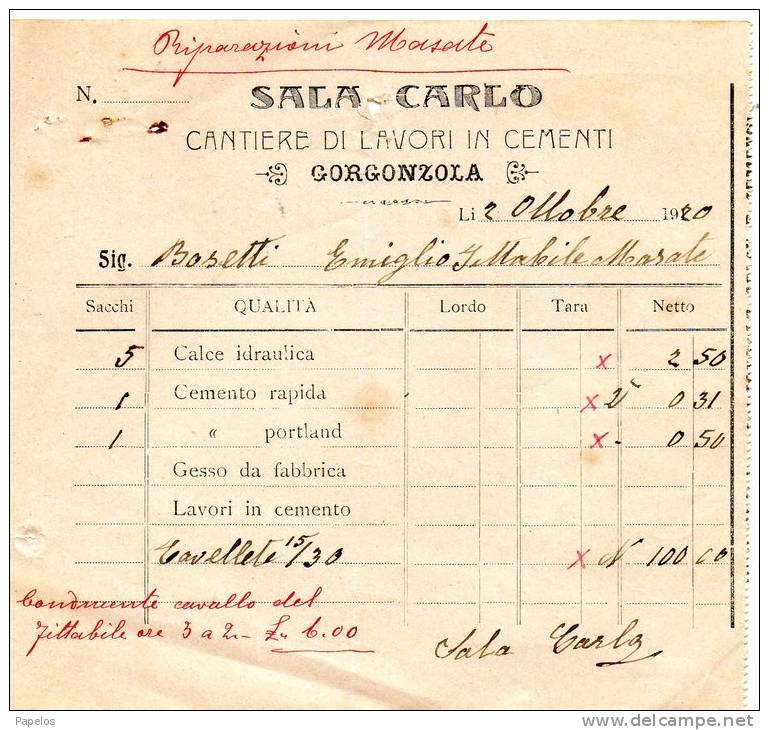 Riparazioni Masate
N.
SALA CARLO
CANTIERE DI LAVORI IN CEMENTI
GORGONZOLA
Li 2 Ottobre 1920
Sig. Bosetti Emiglio Fittabile Masate
Sacchi QUALITÀ Lordo Tara Netto
5 Calce idraulica x 2 50
1 Cemento rapida x 0 31
1 " portland x - 0 50
Gesso da fabbrica
Lavori in cemento
Tavellete 15/30 x N 100 00
cavallo del
Fittabile ore 3 a 2 - £ 6.00
Sala Carlo
Papelos
www.delcampe.net